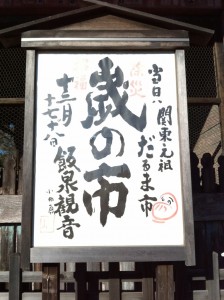 当日ハ関東元祖
だるま市
歳の市
十二月
十七十八日
飯泉観音